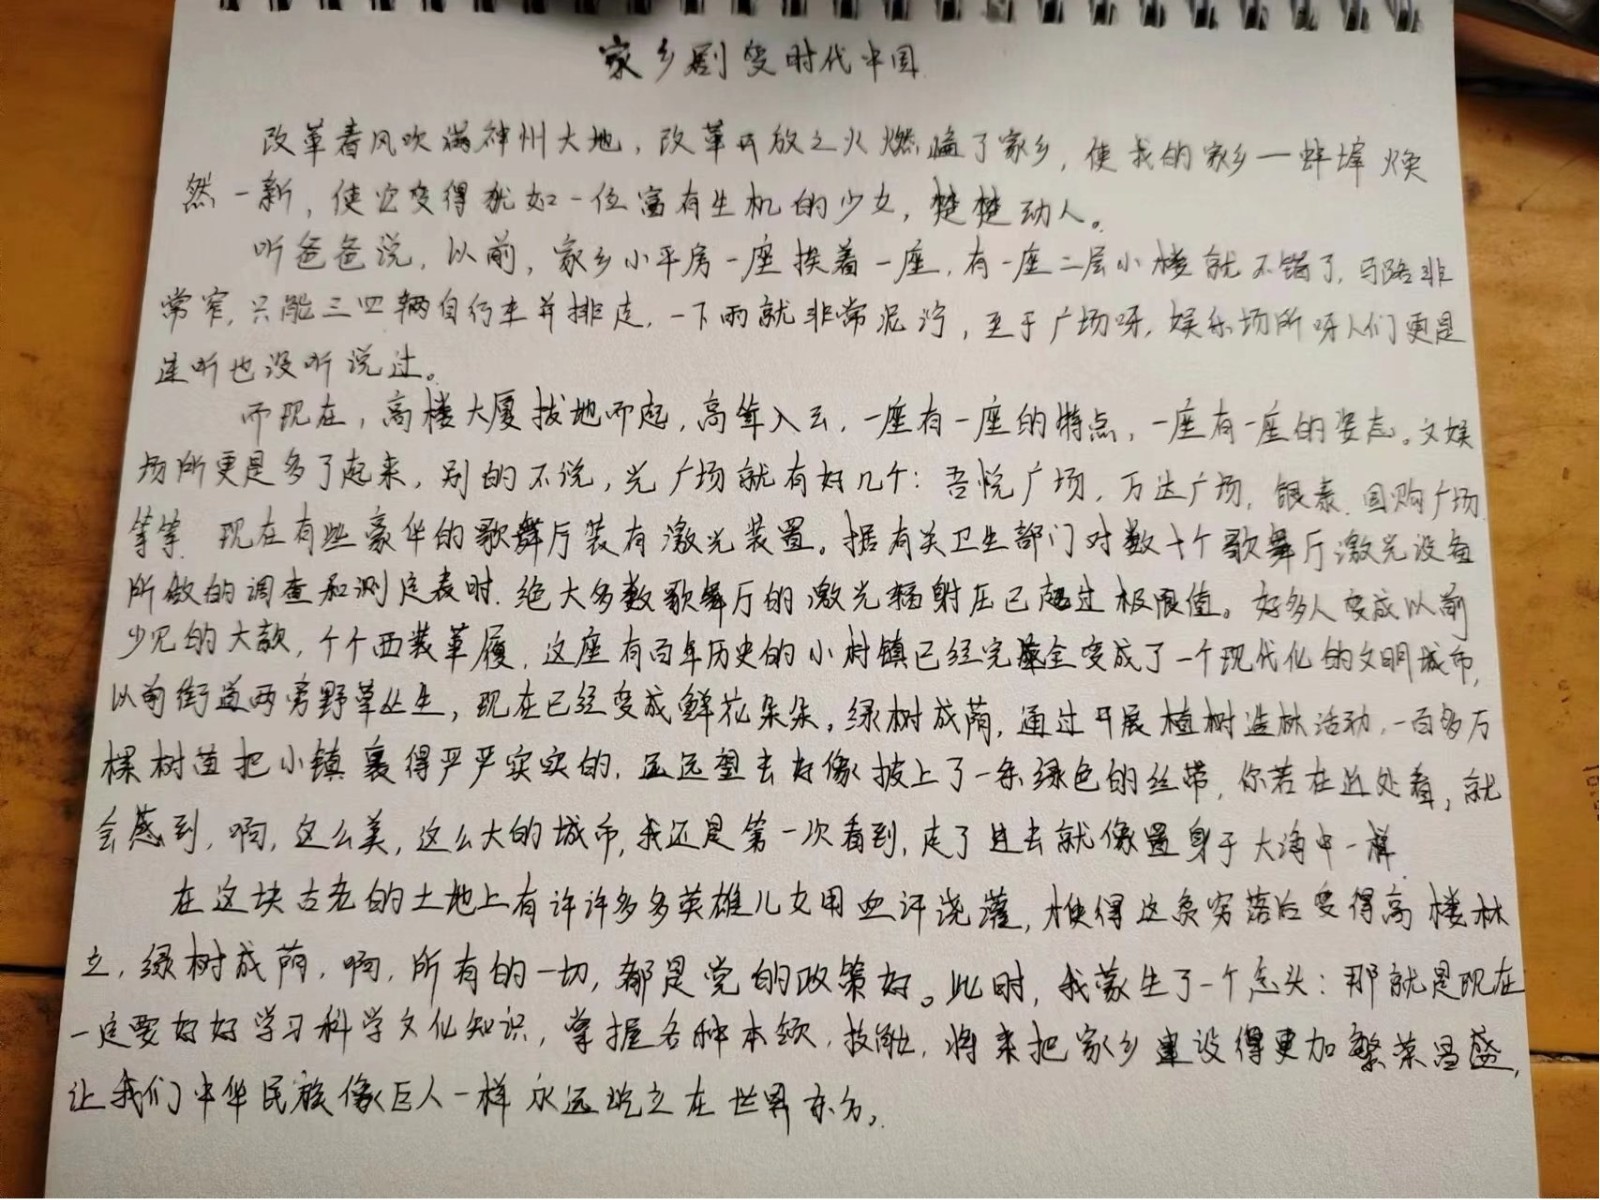 家乡剧变时代中国
改革春风吹满神州大地，改革开放之火燃遍了家乡，使我的家乡一蚌埠焕
然一新，使它变得犹如一位富有生机的少女，楚楚动人。
听爸爸说，以前，家乡小平房一座挨着一座，有一座二层小楼就不错了，马路非
常窄，只能三四辆自行车并排走，一下雨就非常泥泞，至于广场呀，娱乐场所呀人们更是
连听也没听说过。
而现在，高楼大厦拔地而起，高耸入云，一座有一座的特点，一座有一座的姿态。文娱
场所更是多了起来，别的不说，光广场就有好几个：吾悦广场，万达广场，银泰，国购广场
等等 现在有些豪华的歌舞厅装有激光装置。据有关卫生部门对数十个歌舞厅激光设备
所做的调查和测定表时，绝大多数歌舞厅的激光辐射压已超过极限值。好多人变成以前
少见的大款，个个西装革履，这座有百年历史的小村镇已经完全变成了一个现代化的文明城市，
以前街道两旁野草丛生，现在已经变成鲜花朵朵，绿树成荫，通过开展植树造林活动，一百多万
棵树苗把小镇裹得严严实实的，远远望去好像披上了一条绿色的丝带，你若在近处看，就
会感到，啊，这么美，这么大的城市，我还是第一次看到，走了进去就像置身于大海中一样
在这块古老的土地上有许许多多英雄儿女用血汗浇灌，使得这贫穷落后变得高楼林
立，绿树成荫，啊，所有的一切，都是党的政策好。此时，我萌生了一个念头：那就是现在
一定要好好学习科学文化知识，掌握各种本领，技能，将来把家乡建设得更加繁荣昌盛，
让我们中华民族像巨人一样永远屹立在世界东方。